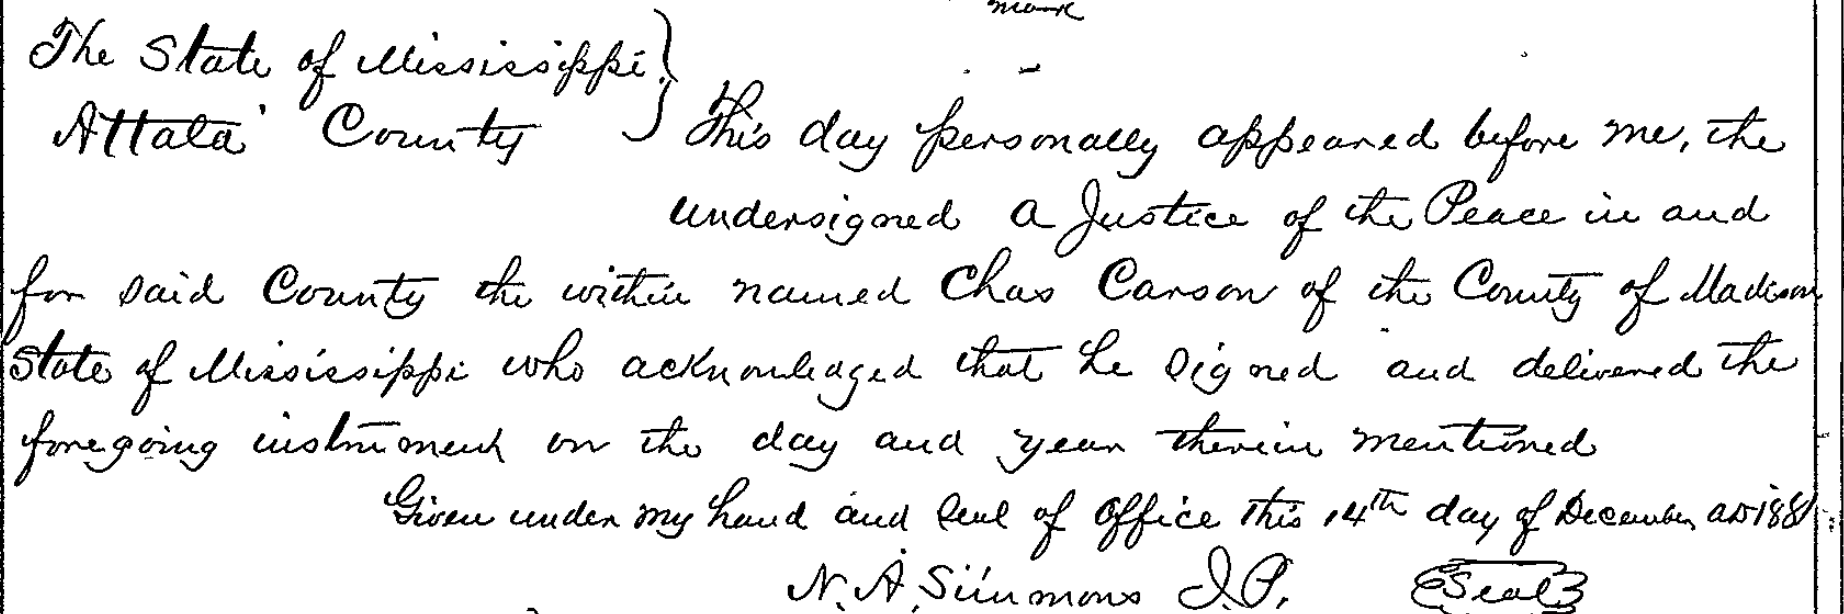 mark
The State of Mississippi }
Attala County } This day personally appeared before me, the
undersigned a Justice of the Peace in and
for said County the within named Chas Carson of the County of Madison
State of Mississippi who acknowledged that he signed and delivered the
foregoing instrument on the day and year therein mentioned
Given under my hand and Seal of Office this 14th day of December AD 1881
N. A. Simmons J. P. (Seal)